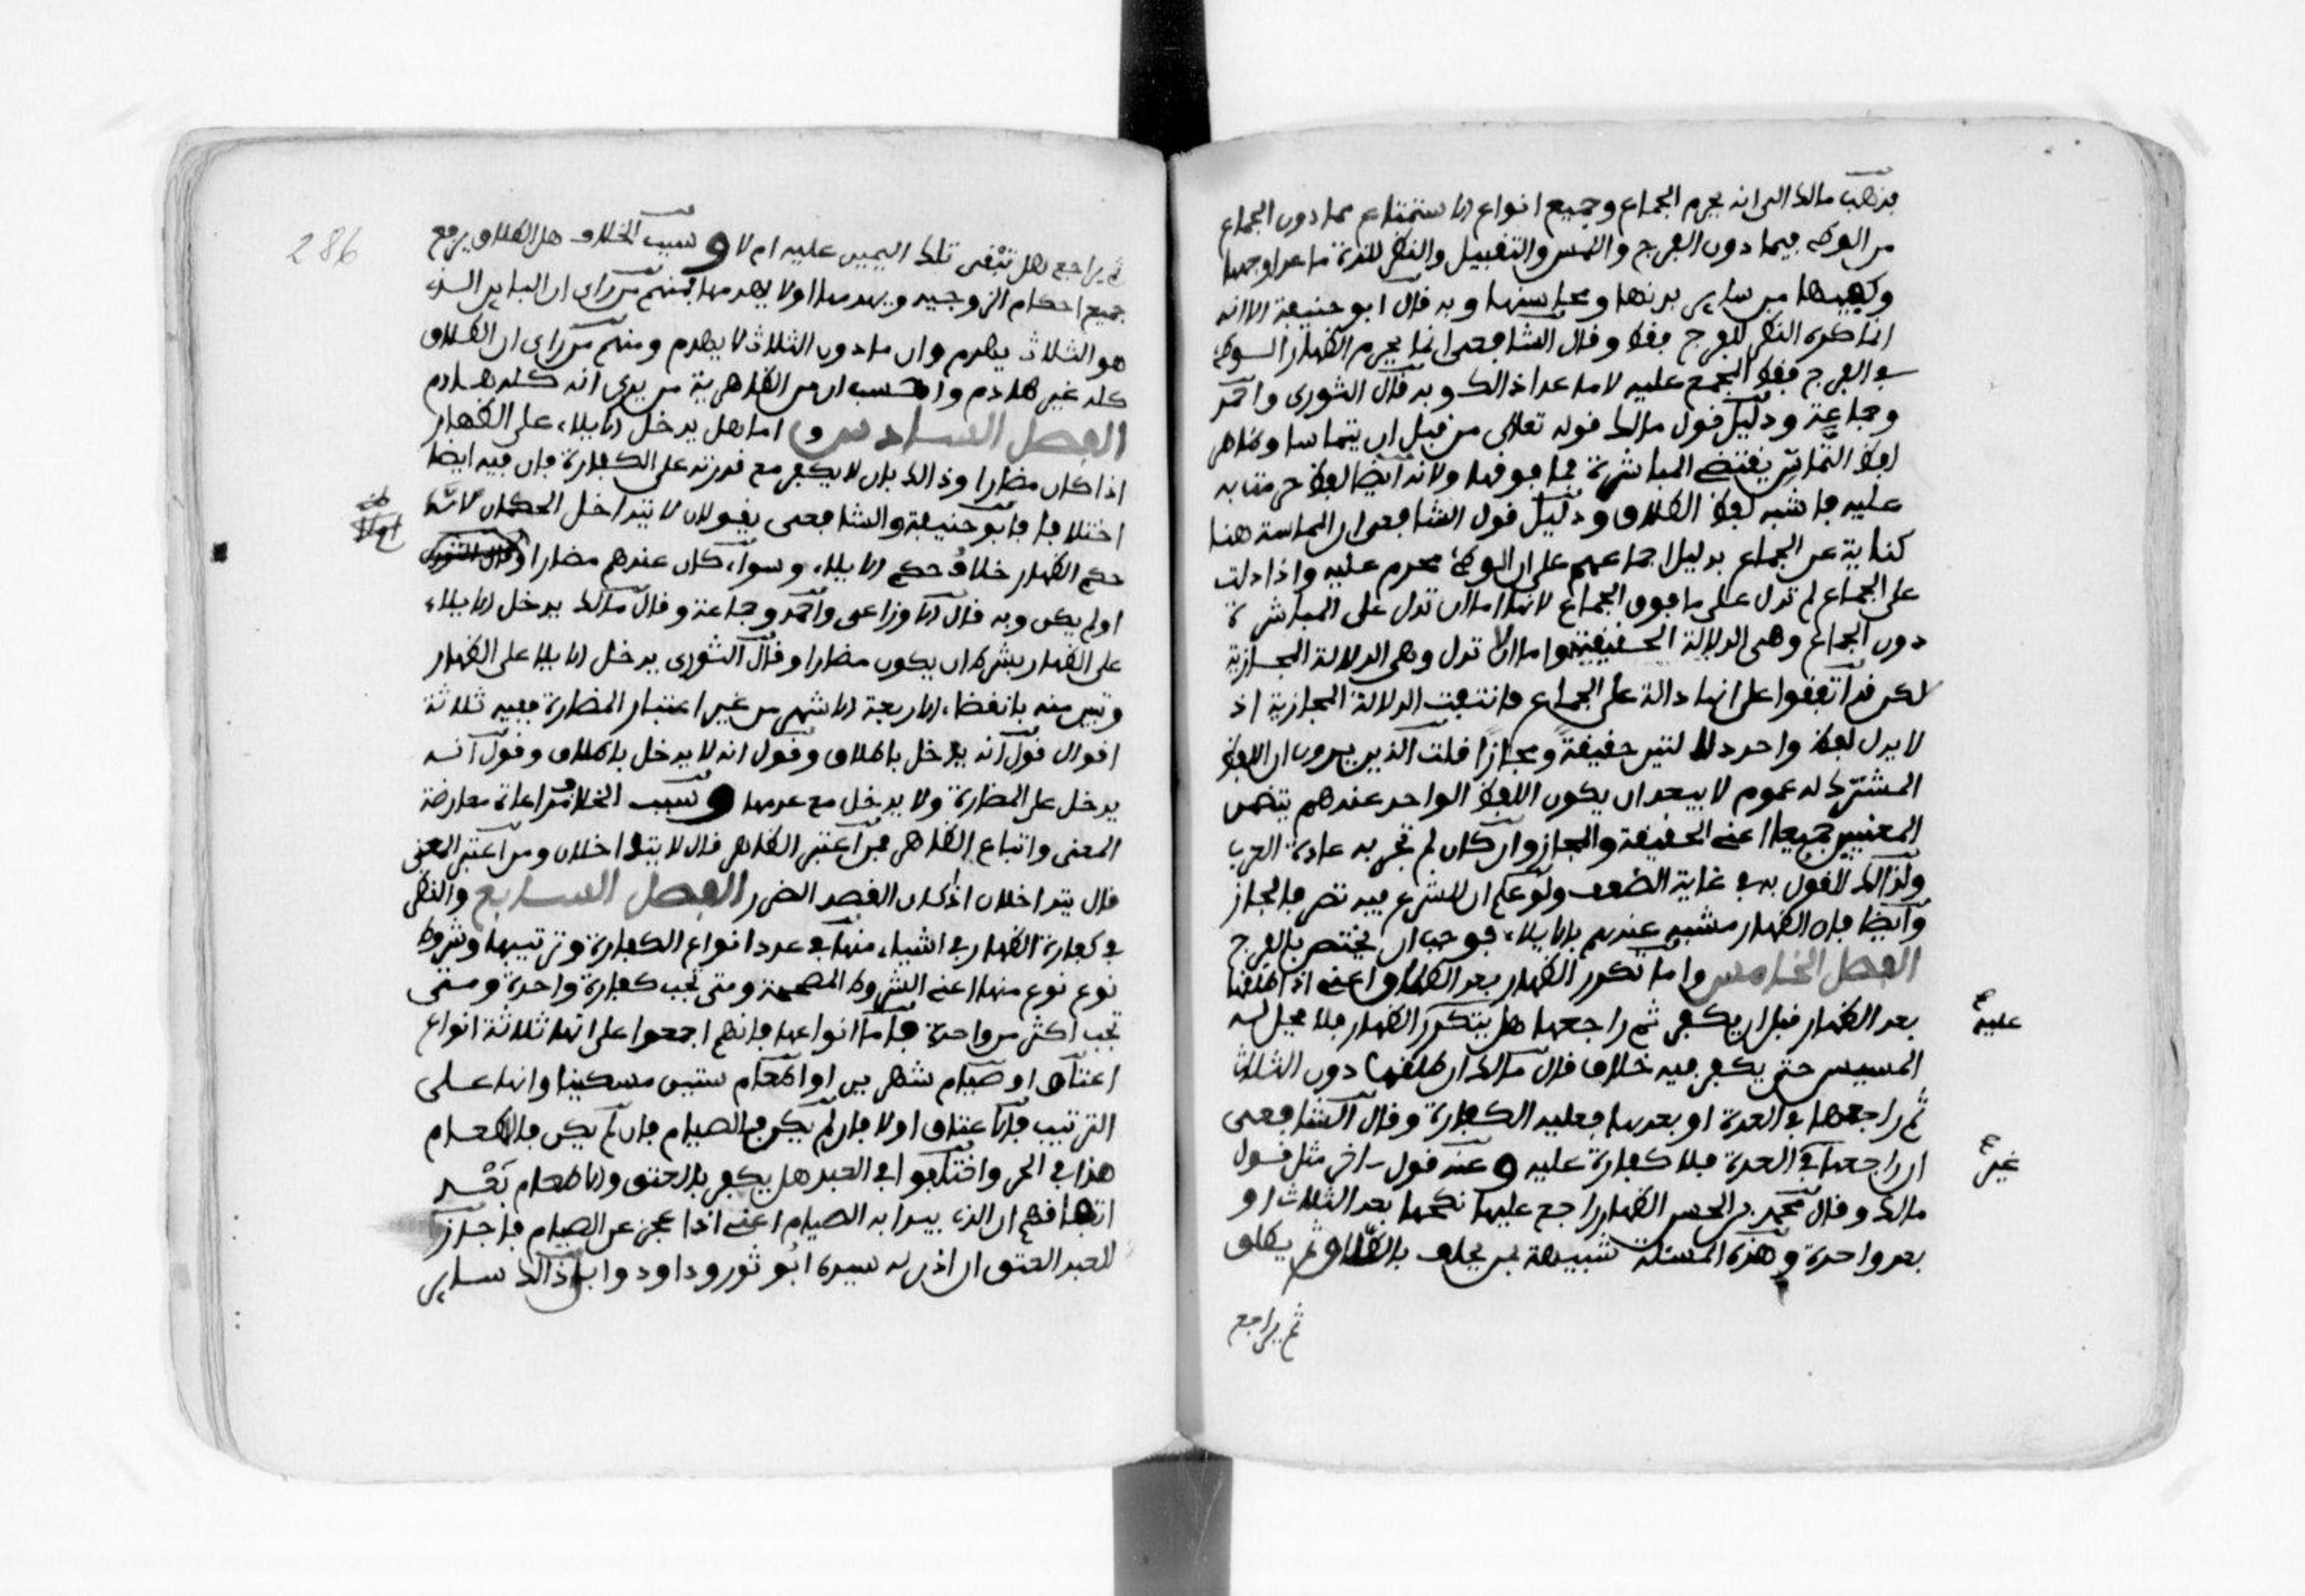 فذهب مالك الى انه يحرم الجماع وجميع انواع الاستمتاع مما دون الجماع
من الوطء فيما دون الفرج واللمس والتقبيل والنظر للذة ما عدا وجهها
وكفيها من ساير بدنها ومحاسنها وبه قال ابو حنيفة الا انه
انما كره النظر للفرج فقط وقال الشافعى انما يحرم الظهار الوطء
في الفرج فقط المجمع عليه لا ما عدا ذالك وبه قال الثورى واحمد
وجماعة ودليل قول مالك قوله تعالى من قبل ان يتماسا وظاهر
لفظ التماس يقتضى المباشرة فما فوقها ولانه ايضا لفظ حرمت به
عليه فاشبه لفظ الطلاق ودليل قول الشافعى ان المماسة هنا
كناية عن الجماع بدليل اجماعهم على ان الوطء محرم عليه واذا دلت
على الجماع لم تدل على ما فوق الجماع لانها اما ان تدل على المباشرة
دون الجماع وهى الدلالة الحقيقية واما ان تدل وهى الدلالة المجازية
لكن قد اتفقوا على انها دالة على الجماع فانتفت الدلالة المجازية اذ
لا يدل لفظ واحد دلالتين حقيقةً ومجازًا قلت الذين يرون ان اللفظ
المشترك له عموم لا يبعد ان يكون اللفظ الواحد عندهم يتضمن
المعنيين جميعا اعنى الحقيقة والمجاز وان كان لم تجر به عادة العرب
ولذالك القول به في غاية الضعف ولو علم ان للشرع فيه تصرفا لجاز
وايضا فان الظهار مشبه عندهم بالايلاء فوجب ان يختص بالفرج
الفصل الخامس واما تكرر الظهار بعد الطلاق اعنى اذا طلقها
بعد الظهار قبل ان يكفر ثم راجعها هل يتكرر الظهار فلا يحل له
عليه
المسيس حتى يكفر فيه خلاف قال مالك ان طلقها دون الثلاث
ثم راجعها في العدة او بعدها فعليه الكفارة وقال الشافعى
ان راجعها في العدة فلا كفارة عليه وعنه قول اخر مثل قول
غير
مالك وقال محمد بن الحسن الظهار راجع عليها نكحها بعد الثلاث او
بعد واحدة وهذه المسئلة شبيهة بمن يحلف بالطلاق ثم يطلق
ثم يراجع
286
ثم يراجع هل تبقى تلك اليمين عليه ام لا وسبب الخلاف هل الطلاق يرفع
جميع احكام الزوجية ويهدمها اولا يهدمها فمنهم من راى ان الباين الذى
هو الثلاث يهدم وان ما دون الثلاث لا يهدم ومنهم من راى ان الطلاق
كله غير هادم واحسب ان من الظاهرية من يرى انه كله هادم
الفصل السادس واما هل يدخل الايلاء على الظهار
اذا كان مضارا وذالك بان لا يكفر مع قدرته على الكفارة فان فيه ايضا
اختلافا فابو حنيفة والشافعى يقولان لا يتداخل الحكمان لان
حكم الظهار خلاف حكم الايلاء وسواء كان عندهم مضارا
او لم يكن وبه قال الاوزاعى واحمد وجماعة وقال مالك يدخل الايلاء
على الظهار بشرط ان يكون مضارا وقال الثورى يدخل الايلا على الظهار
وتبين منه بانقضاء الاربعة الاشهر من غير اعتبار المضارة ففيه ثلاثة
اقوال قول انه يدخل باطلاق وقول انه لا يدخل باطلاق وقول انه
يدخل على المضارة ولا يدخل مع عدمها وسبب الخلاف مراعاة معارضة
المعنى واتباع الظاهر فمن اعتبر الظاهر قال لا يتداخلان ومن اعتبر المعنى
قال يتداخلان اذا كان القصد الضرر الفصل السابع والنظر
في كفارة الظهار في اشياء منها في عدد انواع الكفارة وترتيبها وشروط
نوع نوع منها اعنى الشروط المصححة ومتى تجب كفارة واحدة ومتى
تجب اكثر من واحدة فاما انواعها فانهم اجمعوا على انها ثلاثة انواع
اعتاق او صيام شهرين او اطعام ستين مسكينا وانها على
الترتيب فالاعتاق اولا فان لم يكن فالصيام فان لم يكن فالاطعام
هذا في الحر واختلفوا في العبد هل يكفر بالعتق والاطعام بعد
اتفاقهم ان الذى يبدا به الصيام اعنى اذا عجز عن الصيام فاجاز
للعبد العتق ان اذن له سيده ابو ثور وداود وابا ذالك ساير